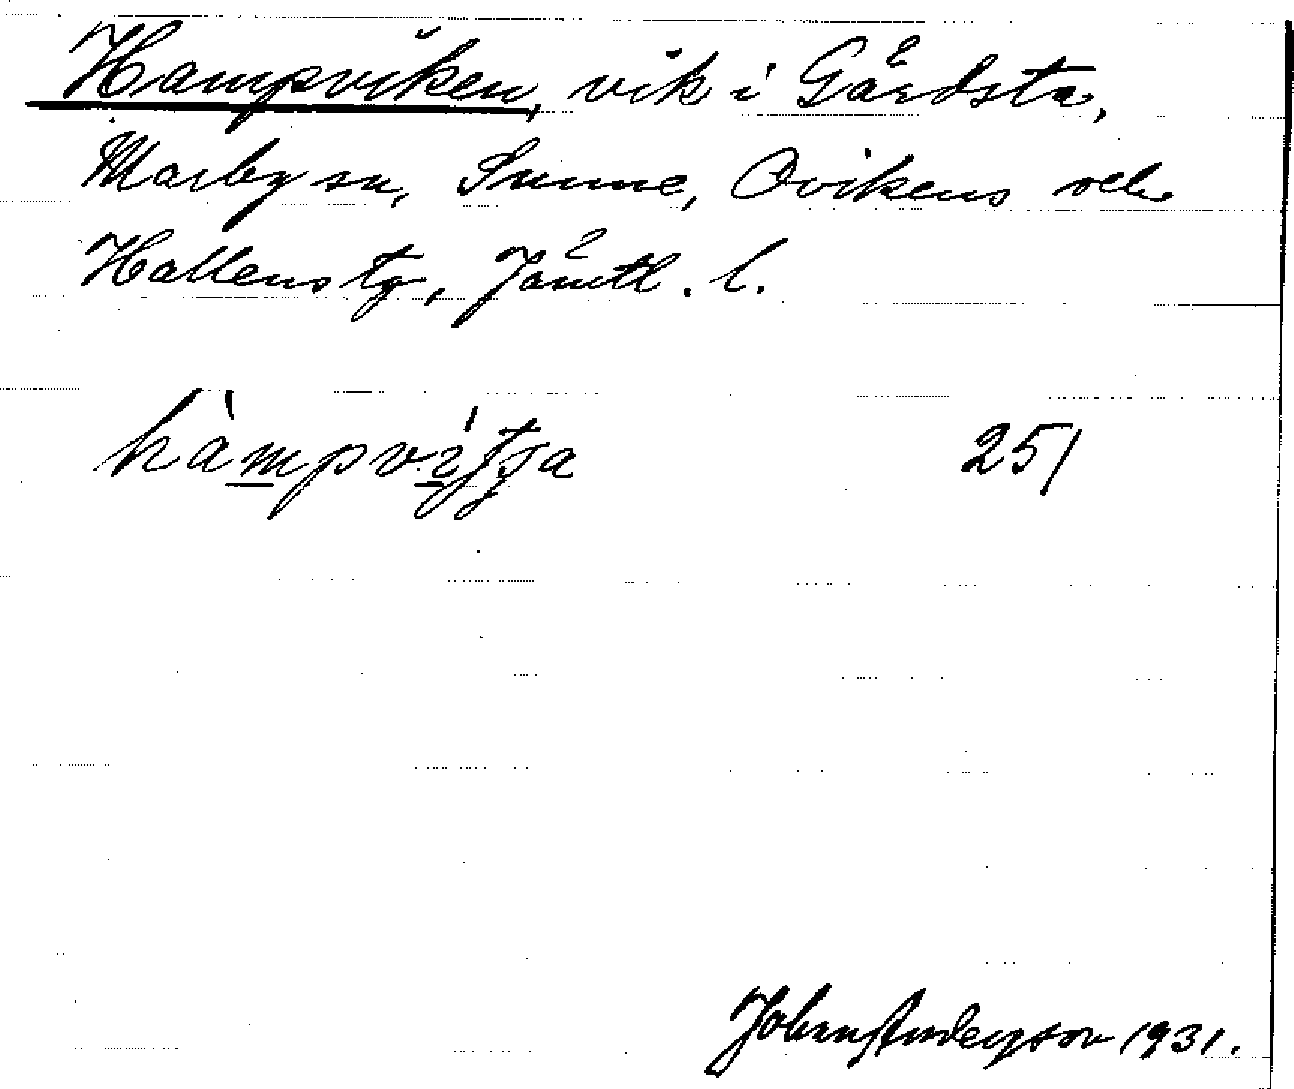 Hampviken, vik i Gärdsta,
Marby sn, Sunne, Ovikens och
Hallens tg, Jämtl. l.
hàmpvítʃa 251
Johan Anderson 1931.